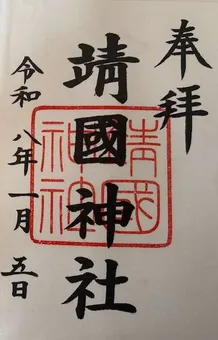 奉拝
靖國神社
令和八年一月五日
靖國
神社